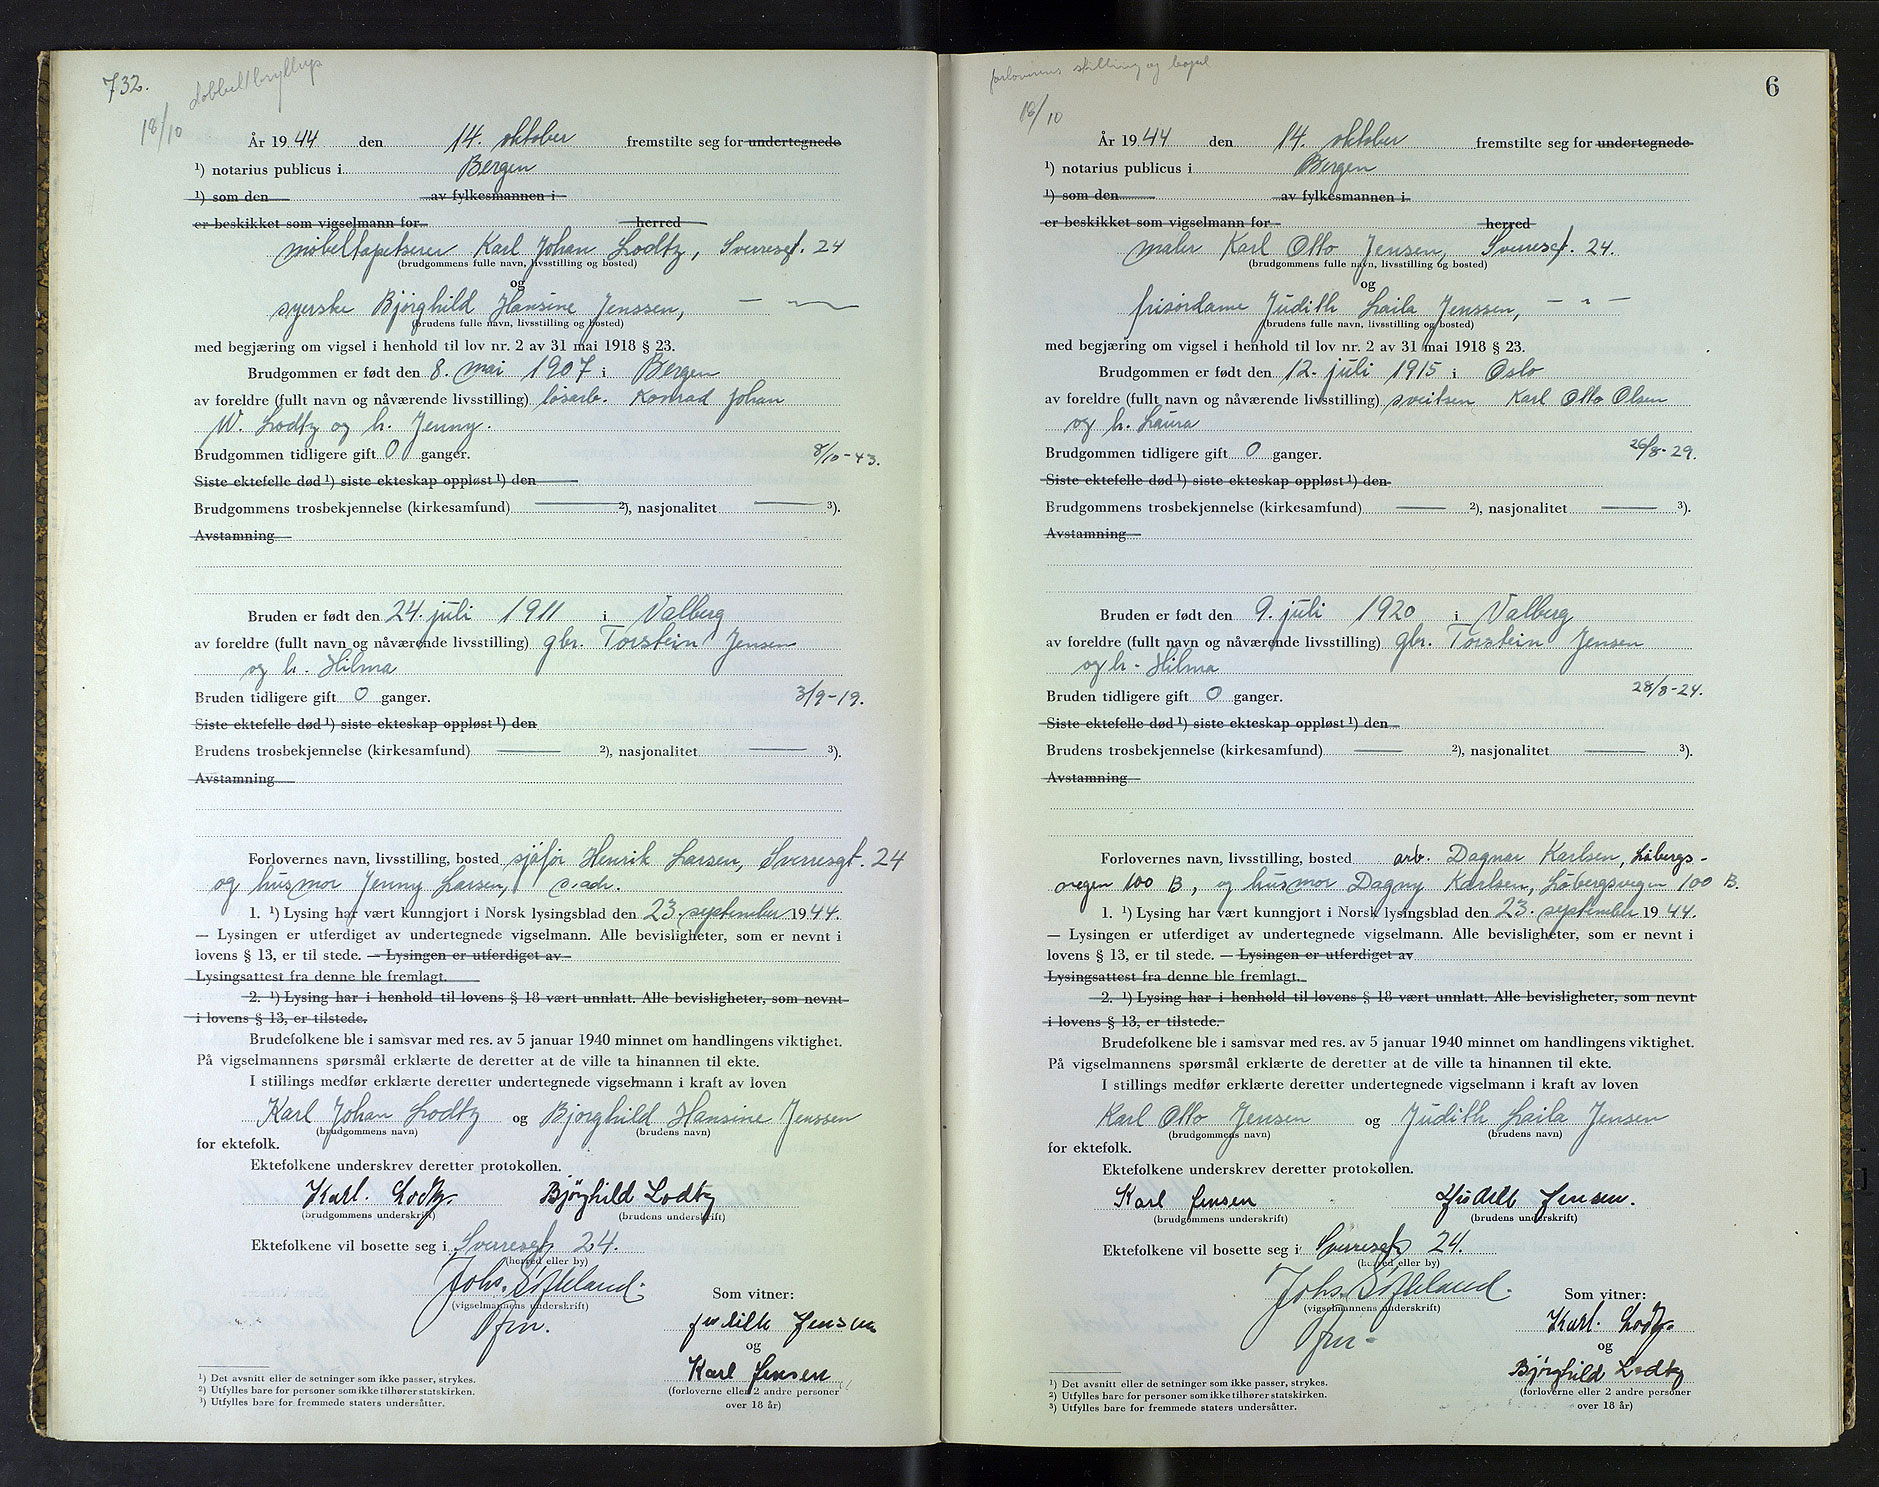 732.
dobbeltbryllup
18/10
År 1944 den 14. oktober fremstilte seg for undertegnede
¹) notarius publicus i Bergen
¹) som den av fylkesmannen i
er beskikket som vigselmann for herred
møbeltapetserer Karl Johan Lodtz, Sverresgt. 24
(brudgommens fulle navn, livsstilling og bosted)
og
syerske Bjørghild Hansine Jenssen, — " —
(brudens fulle navn, livsstilling og bosted)
med begjæring om vigsel i henhold til lov nr. 2 av 31 mai 1918 § 23.
Brudgommen er født den 8. mai 1907 i Bergen
av foreldre (fullt navn og nåværende livsstilling) løsarb. Konrad Johan
W. Lodtz og h. Jenny.
Brudgommen tidligere gift 0 ganger. 8/10-43.
Siste ektefelle død ¹) siste ekteskap oppløst ¹) den
Brudgommens trosbekjennelse (kirkesamfund) — ²), nasjonalitet — ³).
Avstamning
Bruden er født den 24. juli 1911 i Valberg
av foreldre (fullt navn og nåværende livsstilling) gbr. Torstein Jensen
og h. Hilma
Bruden tidligere gift 0 ganger. 3/9-19.
Siste ektefelle død ¹) siste ekteskap oppløst ¹) den
Brudens trosbekjennelse (kirkesamfund) — ²), nasjonalitet — ³).
Avstamning
Forlovernes navn, livsstilling, bosted sjåfør Henrik Larsen, Sverresgt. 24
og husmor Jenny Larsen, s. adr.
1. ¹) Lysing har vært kunngjort i Norsk lysingsblad den 23. september 1944.
— Lysingen er utferdiget av undertegnede vigselmann. Alle bevisligheter, som er nevnt i
lovens § 13, er til stede. — Lysingen er utferdiget av
Lysingsattest fra denne ble fremlagt.
2. ¹) Lysing har i henhold til lovens § 18 vært unnlatt. Alle bevisligheter, som nevnt
i lovens § 13, er tilstede.
Brudefolkene ble i samsvar med res. av 5 januar 1940 minnet om handlingens viktighet.
På vigselmannens spørsmål erklærte de deretter at de ville ta hinannen til ekte.
I stillings medfør erklærte deretter undertegnede vigselmann i kraft av loven
Karl Johan Lodtz og Bjørghild Hansine Jenssen
(brudgommens navn) (brudens navn)
for ektefolk.
Ektefolkene underskrev deretter protokollen.
Karl. Lodtz. Bjørghild Lodtz
(brudgommens underskrift) (brudens underskrift)
Ektefolkene vil bosette seg i Sverresgt 24.
(herred eller by)
Johs. Søfteland.
(vigselmannens underskrift)
fm.
Som vitner:
Judith Jensen
og
Karl Jensen
(forloverne eller 2 andre personer
over 18 år)
¹) Det avsnitt eller de setninger som ikke passer, strykes.
²) Utfylles bare for personer som ikke tilhører statskirken.
³) Utfylles bare for fremmede staters undersåtter.
forlovernes stilling og bopel
6
18/10
År 1944 den 14. oktober fremstilte seg for undertegnede
¹) notarius publicus i Bergen
¹) som den av fylkesmannen i
er beskikket som vigselmann for herred
maler Karl Otto Jensen, Sverresgt. 24.
(brudgommens fulle navn, livsstilling og bosted)
og
frisørdame Judith Laila Jenssen, — " —
(brudens fulle navn, livsstilling og bosted)
med begjæring om vigsel i henhold til lov nr. 2 av 31 mai 1918 § 23.
Brudgommen er født den 12. juli 1915 i Oslo
av foreldre (fullt navn og nåværende livsstilling) sveitsen Karl Otto Olsen
og h. Laura
Brudgommen tidligere gift 0 ganger. 26/8-29.
Siste ektefelle død ¹) siste ekteskap oppløst ¹) den
Brudgommens trosbekjennelse (kirkesamfund) — ²), nasjonalitet — ³).
Avstamning
Bruden er født den 9. juli 1920 i Valberg
av foreldre (fullt navn og nåværende livsstilling) gbr. Torstein Jensen
og h. Hilma
Bruden tidligere gift 0 ganger. 28/8-24.
Siste ektefelle død ¹) siste ekteskap oppløst ¹) den
Brudens trosbekjennelse (kirkesamfund) — ²), nasjonalitet — ³).
Avstamning
Forlovernes navn, livsstilling, bosted arb. Dagnar Karlsen, Løbergs-
vegen 100 B, og husmor Dagny Karlsen, Løbergsvegen 100 B.
1. ¹) Lysing har vært kunngjort i Norsk lysingsblad den 23. september 1944.
— Lysingen er utferdiget av undertegnede vigselmann. Alle bevisligheter, som er nevnt i
lovens § 13, er til stede. — Lysingen er utferdiget av
Lysingsattest fra denne ble fremlagt.
2. ¹) Lysing har i henhold til lovens § 18 vært unnlatt. Alle bevisligheter, som nevnt
i lovens § 13, er tilstede.
Brudefolkene ble i samsvar med res. av 5 januar 1940 minnet om handlingens viktighet.
På vigselmannens spørsmål erklærte de deretter at de ville ta hinannen til ekte.
I stillings medfør erklærte deretter undertegnede vigselmann i kraft av loven
Karl Otto Jensen og Judith Laila Jensen
(brudgommens navn) (brudens navn)
for ektefolk.
Ektefolkene underskrev deretter protokollen.
Karl Jensen Judith Jensen.
(brudgommens underskrift) (brudens underskrift)
Ektefolkene vil bosette seg i Sverresgt 24.
(herred eller by)
Johs. Søfteland.
(vigselmannens underskrift)
fm.
Som vitner:
Karl. Lodtz.
og
Bjørghild Lodtz
(forloverne eller 2 andre personer
over 18 år)
¹) Det avsnitt eller de setninger som ikke passer, strykes.
²) Utfylles bare for personer som ikke tilhører statskirken.
³) Utfylles bare for fremmede staters undersåtter.